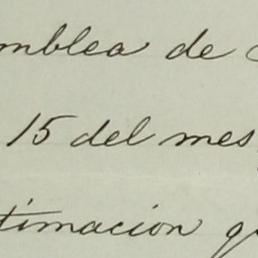 mblea de
15 del mes
timacion